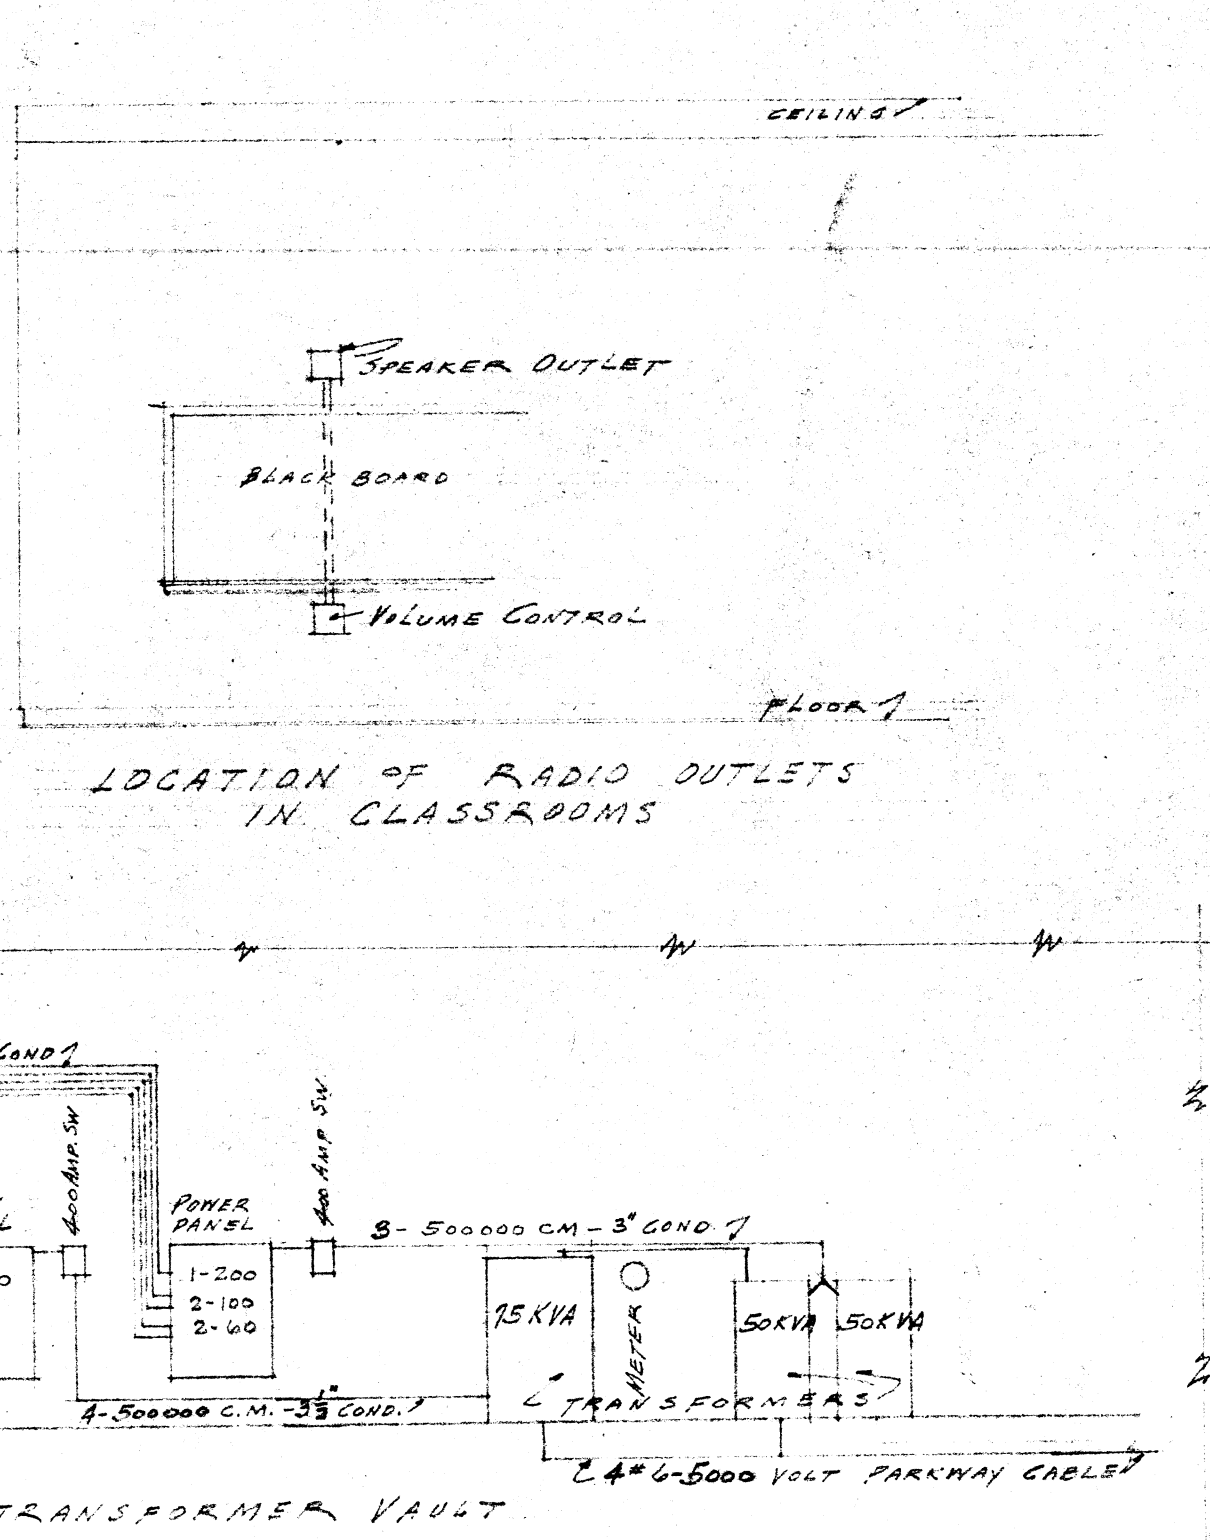 CEILING
SPEAKER OUTLET
BLACK BOARD
VOLUME CONTROL
FLOOR
LOCATION OF RADIO OUTLETS
IN CLASSROOMS
COND
400 AMP. SW
400 AMP SW.
POWER
PANEL
3 - 500000 CM - 3" COND.
1-200
2-100
2-60
75 KVA
METER
50 KVA
50 KVA
TRANSFORMERS
4-500000 C.M. - 3½" COND.
4 #6-5000 VOLT PARKWAY CABLE
TRANSFORMER VAULT